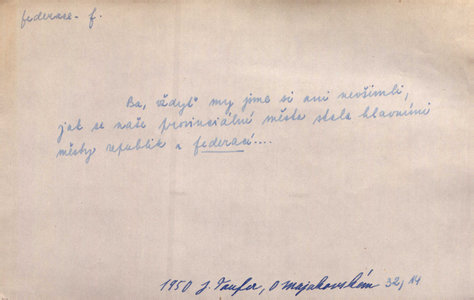 federace - f.
Ba, vždyť my jsme si ani nevšimli,
jak se naše provinciální města stala hlavními
městy republik a federací....
1950 J. Taufer, O majakovském 32, 14